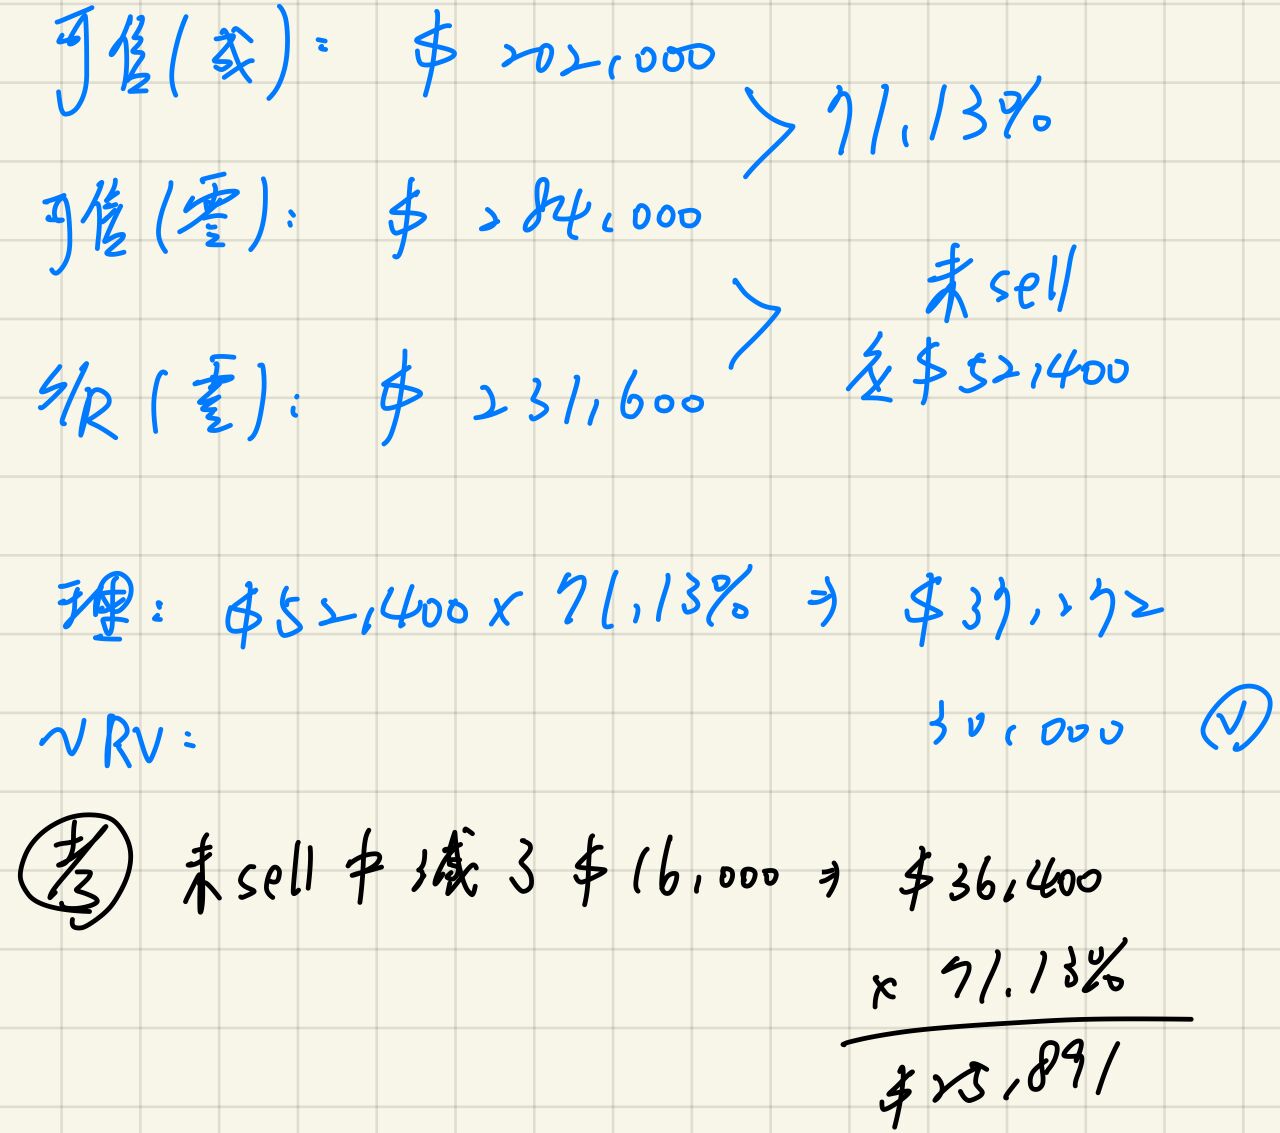 可售(成): $ 202,000
> 71.13%
可售(零): $ 284,000
> 未sell
S/R (零): $ 231,600
$52,400
理: $52,400 x 71.13% ⇒ $37,272
NRV: 30,000 ✓
考 未sell 中 減 3 $16,000 ⇒ $36,400
x 71.13%
$25,891